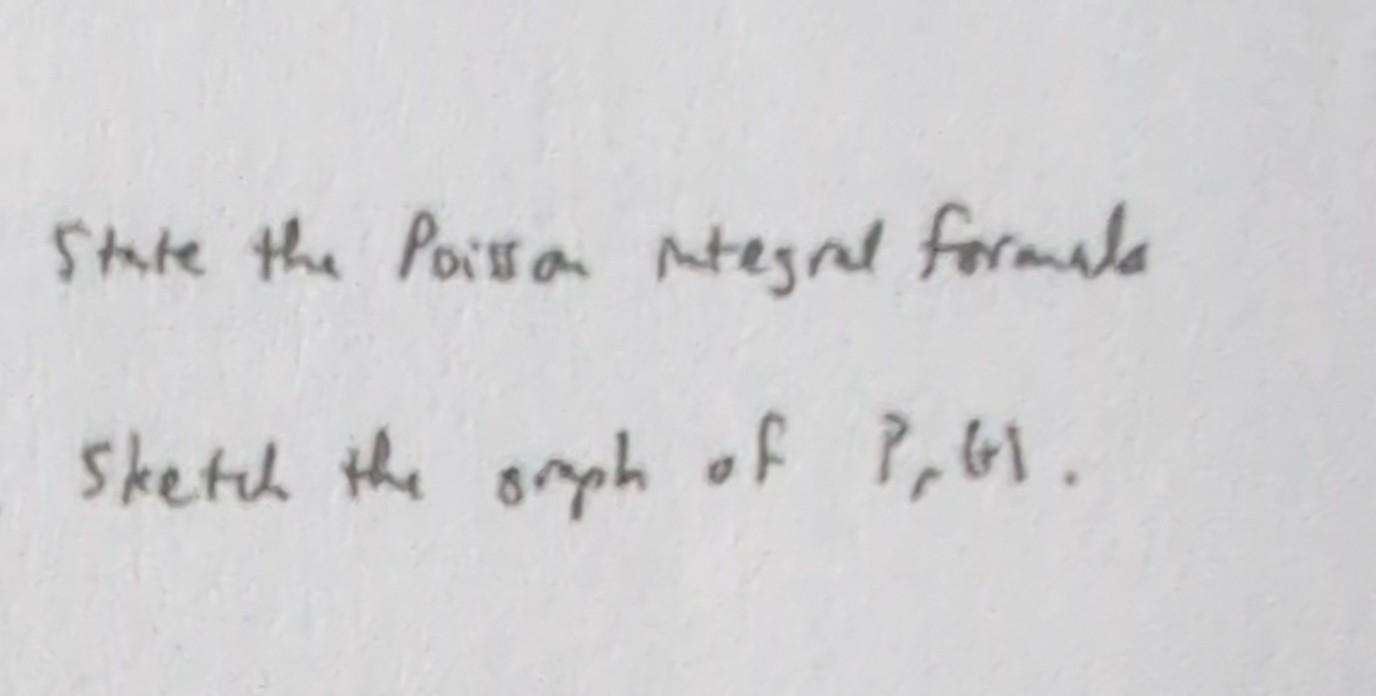 State the Poisson integral formula
Sketch the graph of Pr(θ).